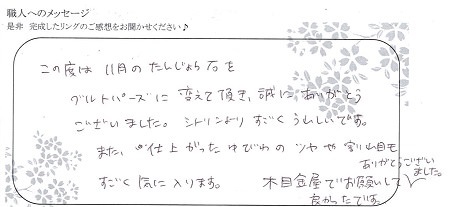 職人へのメッセージ
是非 完成したリングのご感想をお聞かせください♪
この度は 11月の たんじょう石を
ブルトパーズに 変えて頂き、誠に ありがとう
ございました。 シトリンより すごく うれしいです。
また、仕上がった ゆびわの ツヤや 割り目も
すごく 気に入ります。 木目金屋でお願いして
良かったです。
ありがとうござい
ました。